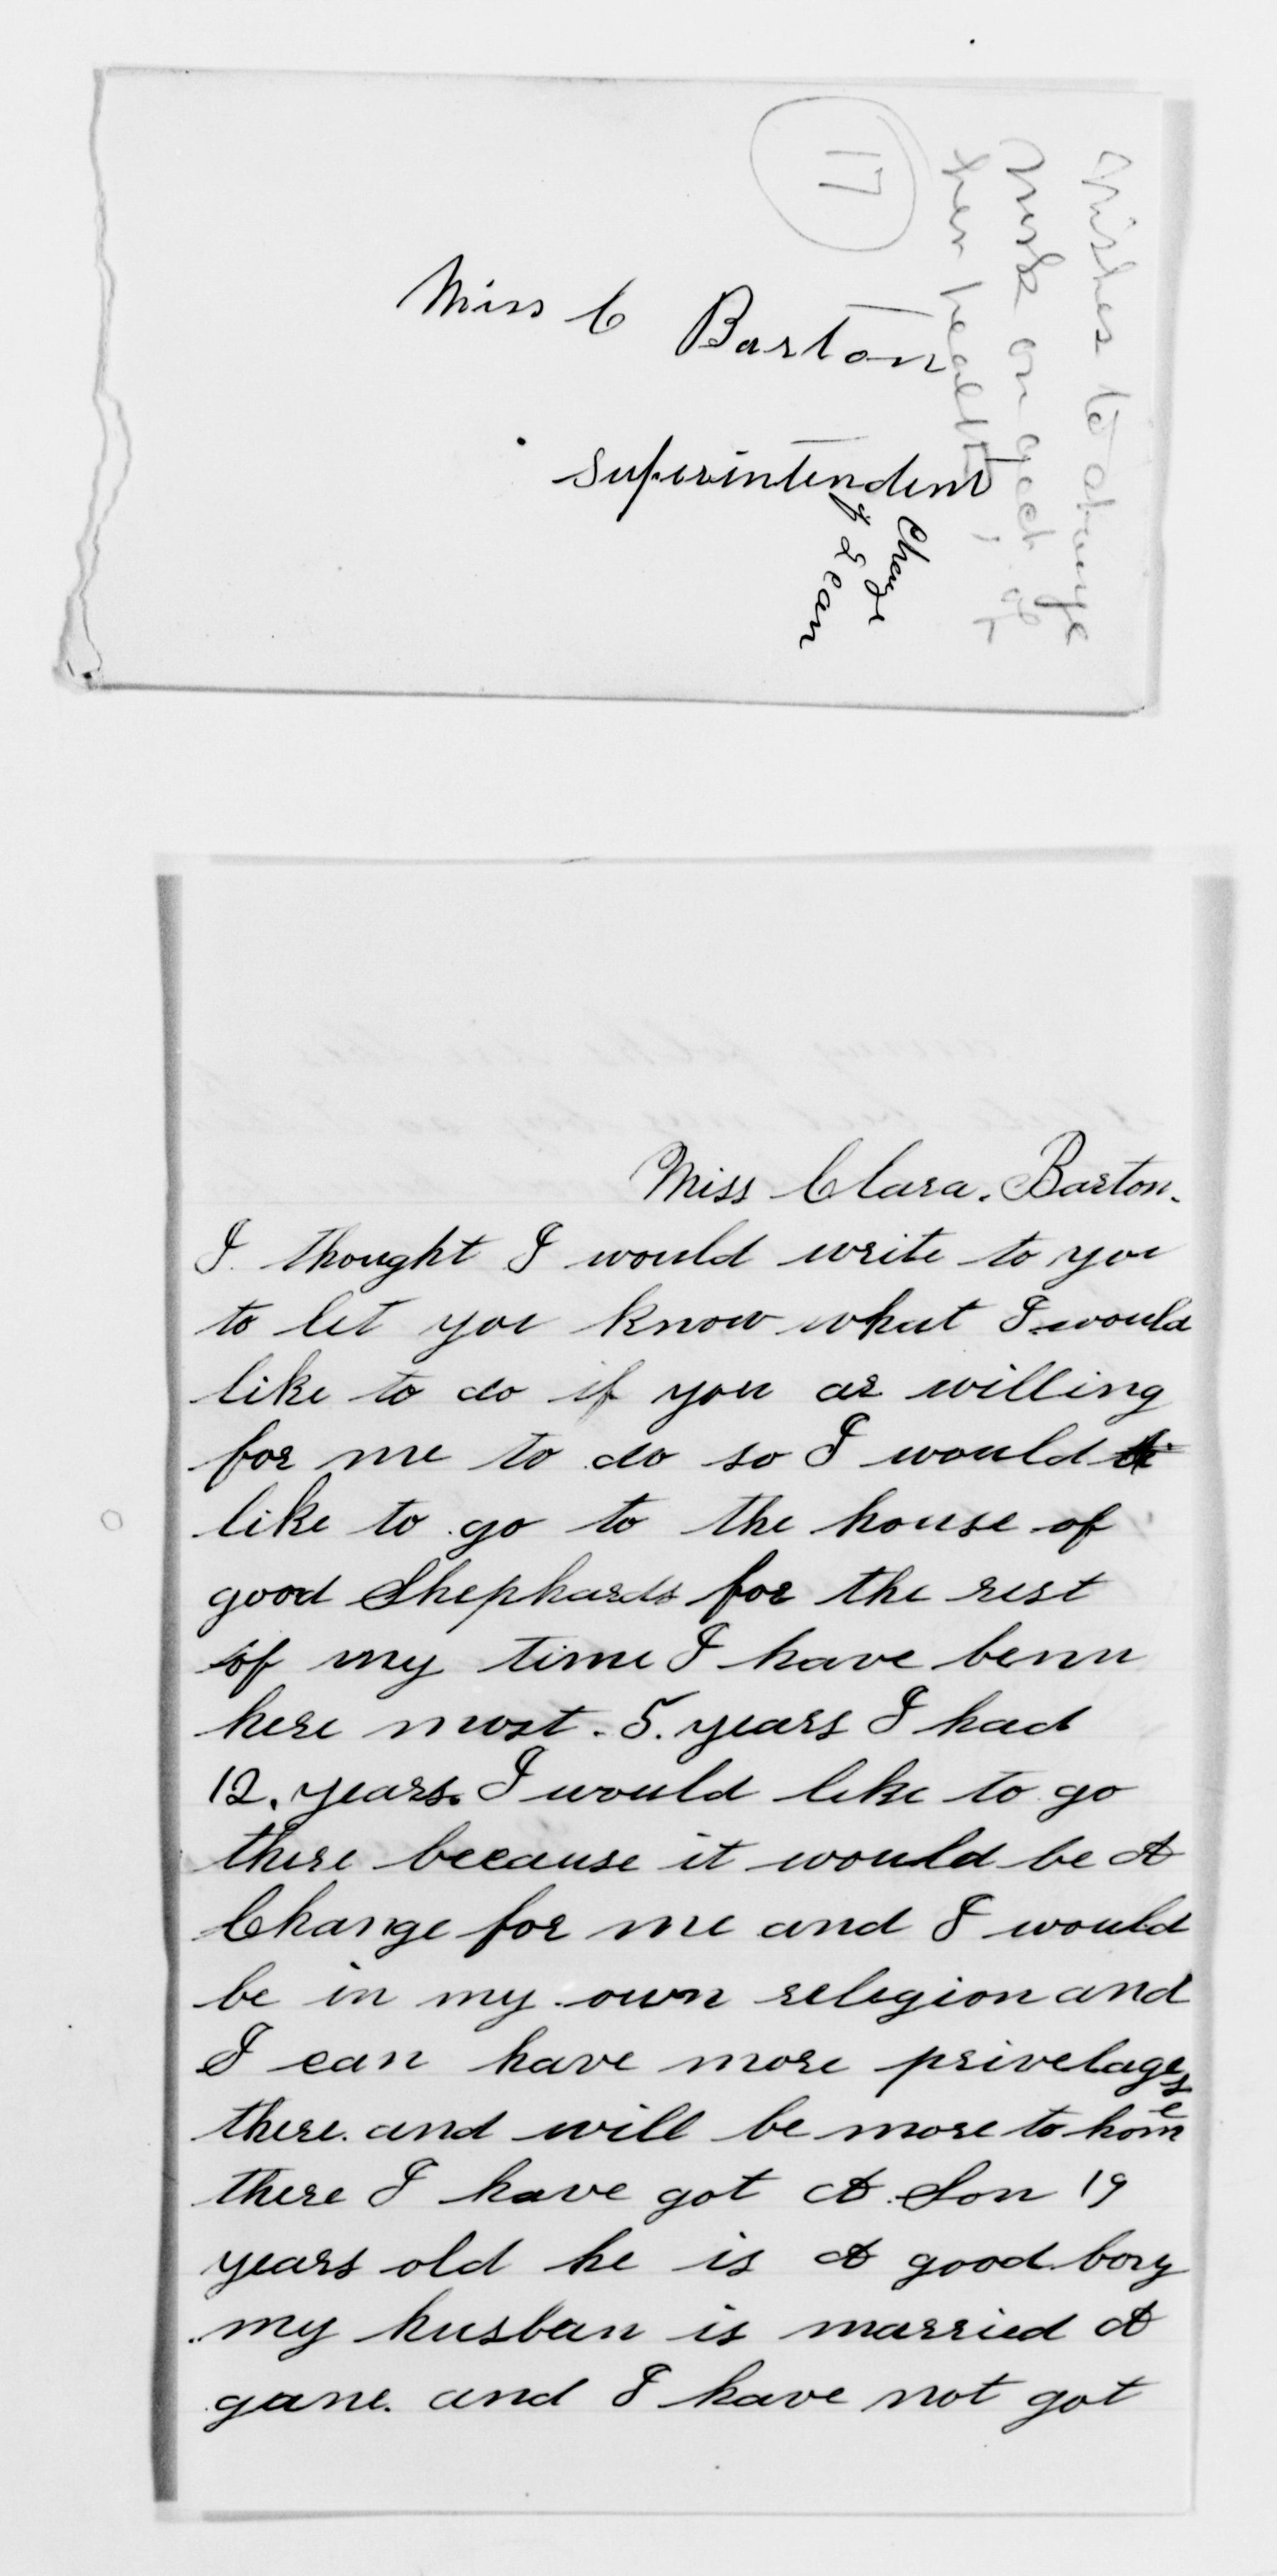 17
Wishes to change
work on acct. of
her health,
Miss C Barton
Superintendent
Change
if I can
Miss Clara. Barton.
I. thought I would write to you
to let you know what I would
like to do if you ar willing
for me to do so I would
like to go to the house of
good Shephards for the rest
of my time I have benn
here most. 5. years I had
12. years. I would like to go
there because it would be A
Change for me and I would
be in my own relegion and
I can have more privelages
there. and will be more to home
there I have got A. Son 19
years old he is A good bory
my husban is married A
gane. and I have not got